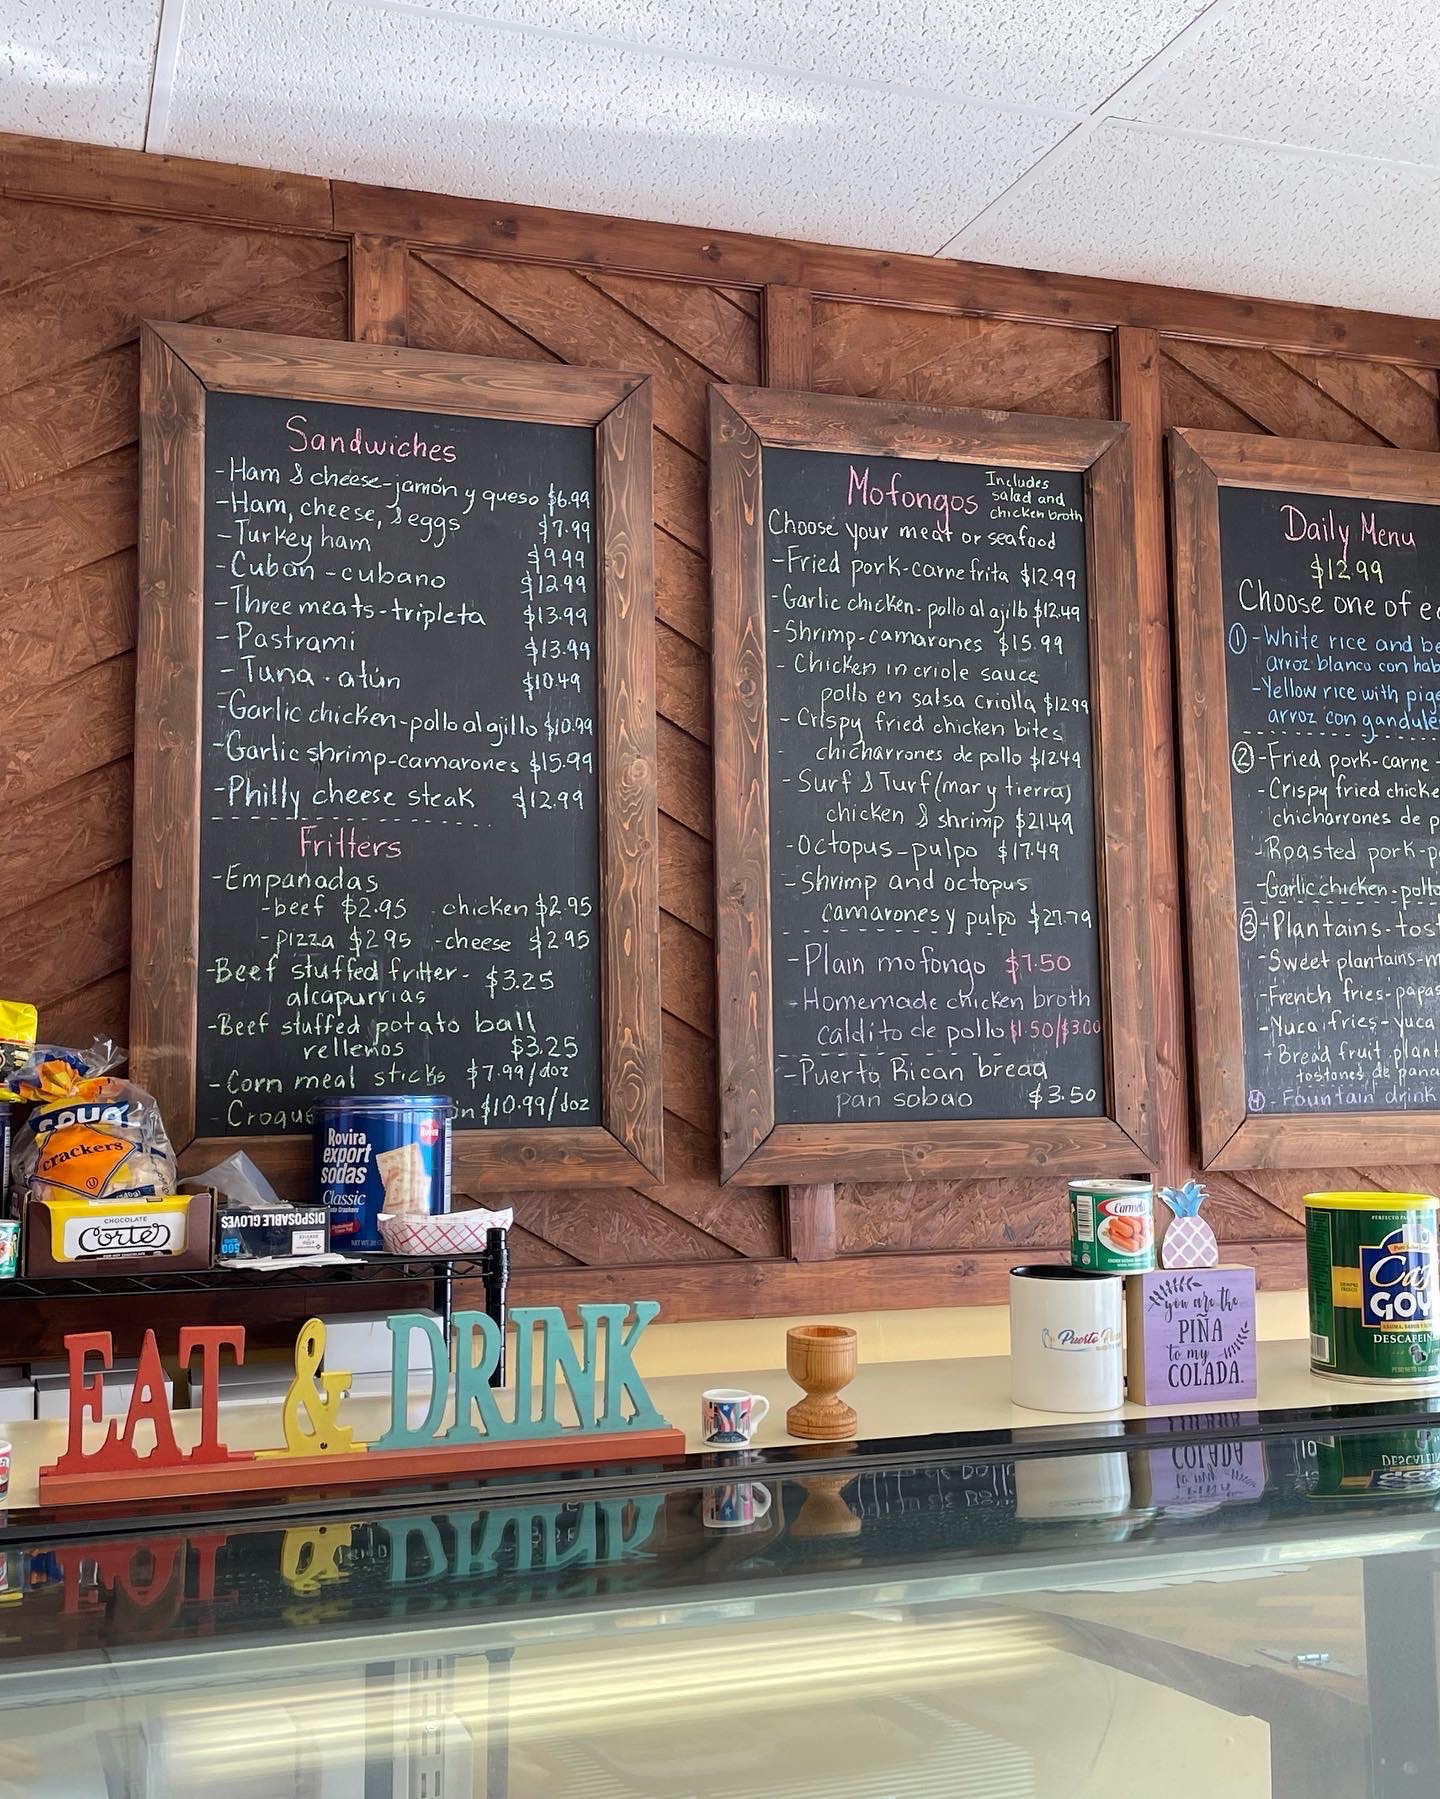 Sandwiches
-Ham & cheese-jamón y queso $6.99
-Ham, cheese, & eggs $7.99
-Turkey ham $9.99
-Cuban - cubano $12.99
-Three meats-tripleta $13.99
-Pastrami $13.99
-Tuna - atún $10.49
-Garlic chicken-pollo al ajillo $10.99
-Garlic shrimp-camarones $15.99
-Philly cheese steak $12.99
Fritters
-Empanadas
-beef $2.95 -chicken $2.95
-pizza $2.95 -cheese $2.95
-Beef stuffed fritter- $3.25
alcapurrias
-Beef stuffed potato ball
rellenos $3.25
-Corn meal sticks $7.99/doz
-Croque $10.99/doz
Mofongos
Includes
salad and
chicken broth
Choose your meat or seafood
-Fried pork-carne frita $12.99
-Garlic chicken-pollo al ajillo $12.49
-Shrimp-camarones $15.99
-Chicken in criole sauce
pollo en salsa criolla $12.99
-Crispy fried chicken bites
chicharrones de pollo $12.49
-Surf & Turf (mar y tierra)
chicken & shrimp $21.49
-Octopus-pulpo $17.49
-Shrimp and octopus
camarones y pulpo $27.79
-Plain mofongo $7.50
-Homemade chicken broth
caldito de pollo $1.50/$3.00
-Puerto Rican bread
pan sobao $3.50
Daily Menu
$12.99
Choose one of
① -White rice and
arroz blanco con
-Yellow rice with
arroz con gandules
② -Fried pork-carne -
-Crispy fried
chicharrones de
-Roasted pork-
-Garlic chicken-pollo
③ -Plantains-
-Sweet plantains-
-French fries-papas
-Yuca fries-yuca
-Bread fruit
tostones de
④ -Fountain drink
GOYA
crackers
CHOCOLATE
Cortés
DISPOSABLE GLOVES
500
Rovira
Rovira
export
sodas
Classic
EAT & DRINK
Carmela
Puerto
you are the
PIÑA
to my
COLADA.
Café
GOYA